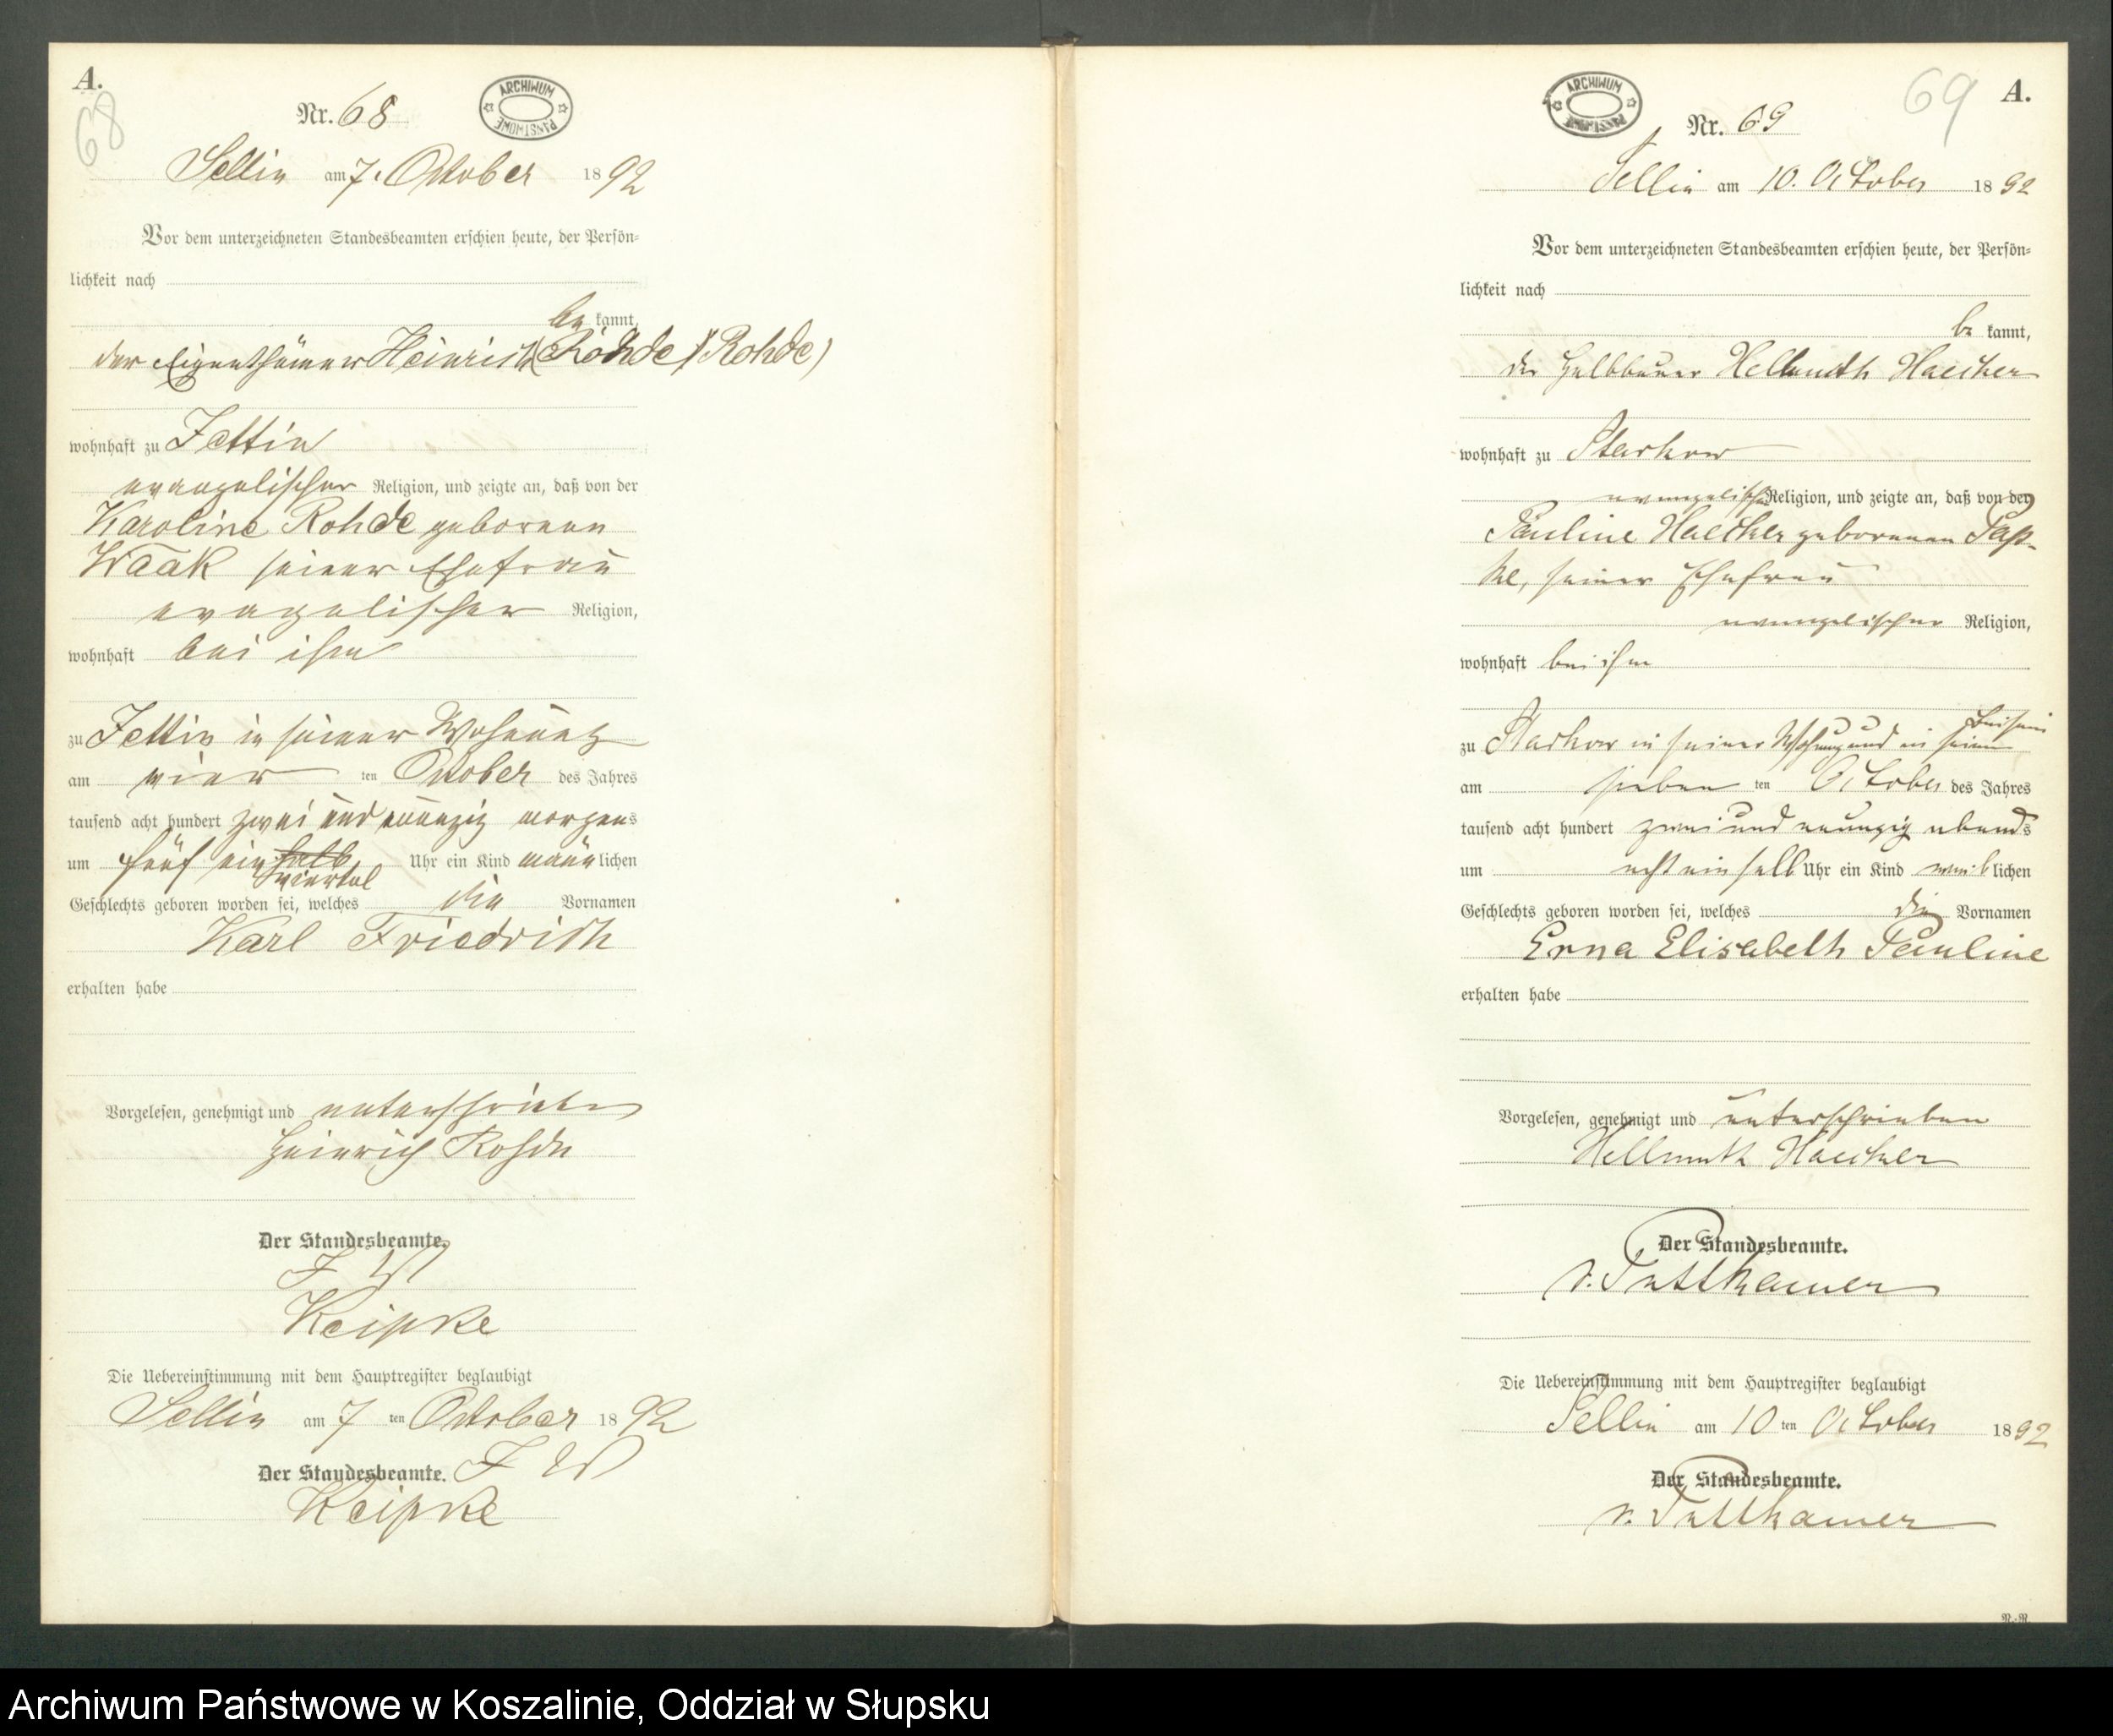 A.
68
Nr. 68
ARCHIWUM PAŃSTWOWE
Sellin am 7. October 1892
Vor dem unterzeichneten Standesbeamten erschien heute, der Persön-
lichkeit nach
be kannt,
der Eigenthümer Heinrich (Rohde) (Rohde)
wohnhaft zu Jettin
evangelischer Religion, und zeigte an, daß von der
Karoline Rohde geborenen
Waak seiner Ehefrau
evagelischer Religion,
wohnhaft bei ihm
zu Jettin in seiner Wohnung
am vier ten October des Jahres
tausend acht hundert zwei und neunzig morgens
um fünf ein halb Uhr ein Kind männlichen
viertel
Geschlechts geboren worden sei, welches die Vornamen
Karl Friedrich
erhalten habe
Vorgelesen, genehmigt und unterschrieben
Heinrich Rohde
Der Standesbeamte.
F W
Keipke
Die Uebereinstimmung mit dem Hauptregister beglaubigt
Sellin am 7 ten October 1892
Der Standesbeamte. F W
Keipke
69
A.
ARCHIWUM PAŃSTWOWE
Nr. 69
Sellin am 10. October 1892
Vor dem unterzeichneten Standesbeamten erschien heute, der Persön-
lichkeit nach
be kannt,
der Halbbauer Hellmuth Haecker
wohnhaft zu Starkow
evangelischer Religion, und zeigte an, daß von der
Pauline Haecker geborenen Pasch-
ke, seiner Ehefrau
evangelischer Religion,
wohnhaft bei ihm
zu Starkow in seiner Wohnung und in seinem Beisein
am sieben ten October des Jahres
tausend acht hundert zwei und neunzig abends
um acht ein halb Uhr ein Kind weiblichen
Geschlechts geboren worden sei, welches die Vornamen
Erna Elisabeth Pauline
erhalten habe
Vorgelesen, genehmigt und unterschrieben
Hellmuth Haecker
Der Standesbeamte.
v. Puttkamer
Die Uebereinstimmung mit dem Hauptregister beglaubigt
Sellin am 10 ten October 1892
Der Standesbeamte.
v. Puttkamer
Archiwum Państwowe w Koszalinie, Oddział w Słupsku